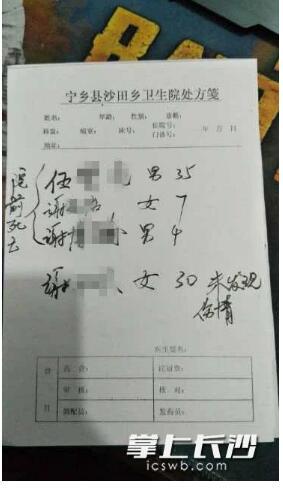 宁乡县沙田乡卫生院处方笺
姓名: 年龄: 性别:
科室: 病室: 床号: 住院号: 年 月 日
门诊号:
地址:
院前死亡
伍 男 35
谢 女 7
谢 男 4
谢 女 30 未发现
伤情
医生签名:
核 对:
审 核:
调配员: 发药员:
掌上长沙
icswb.com